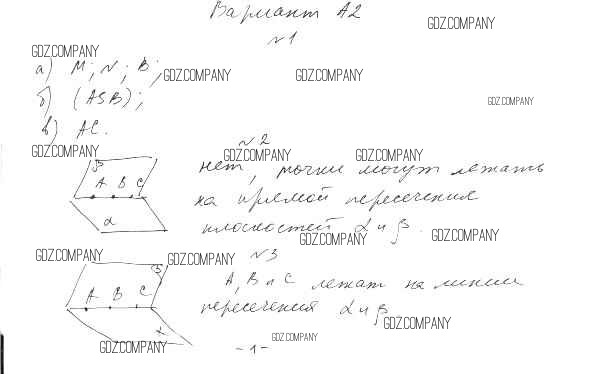 Вариант А2
GDZ.COMPANY
№1
GDZ.COMPANY
а) M; N; B;
GDZ.COMPANY
GDZ.COMPANY
б) (ASB);
GDZ.COMPANY
в) AC.
GDZ.COMPANY
№2
GDZ.COMPANY
GDZ.COMPANY
β
A B C
α
нет, точки могут лежать
на прямой пересечения
плоскостей α и β.
GDZ.COMPANY
GDZ.COMPANY
GDZ.COMPANY
GDZ.COMPANY
№3
β
A B C
α
A, B и C лежат на линии
пересечения α и β
GDZ.COMPANY
GDZ.COMPANY
GDZ.COMPANY
-1-